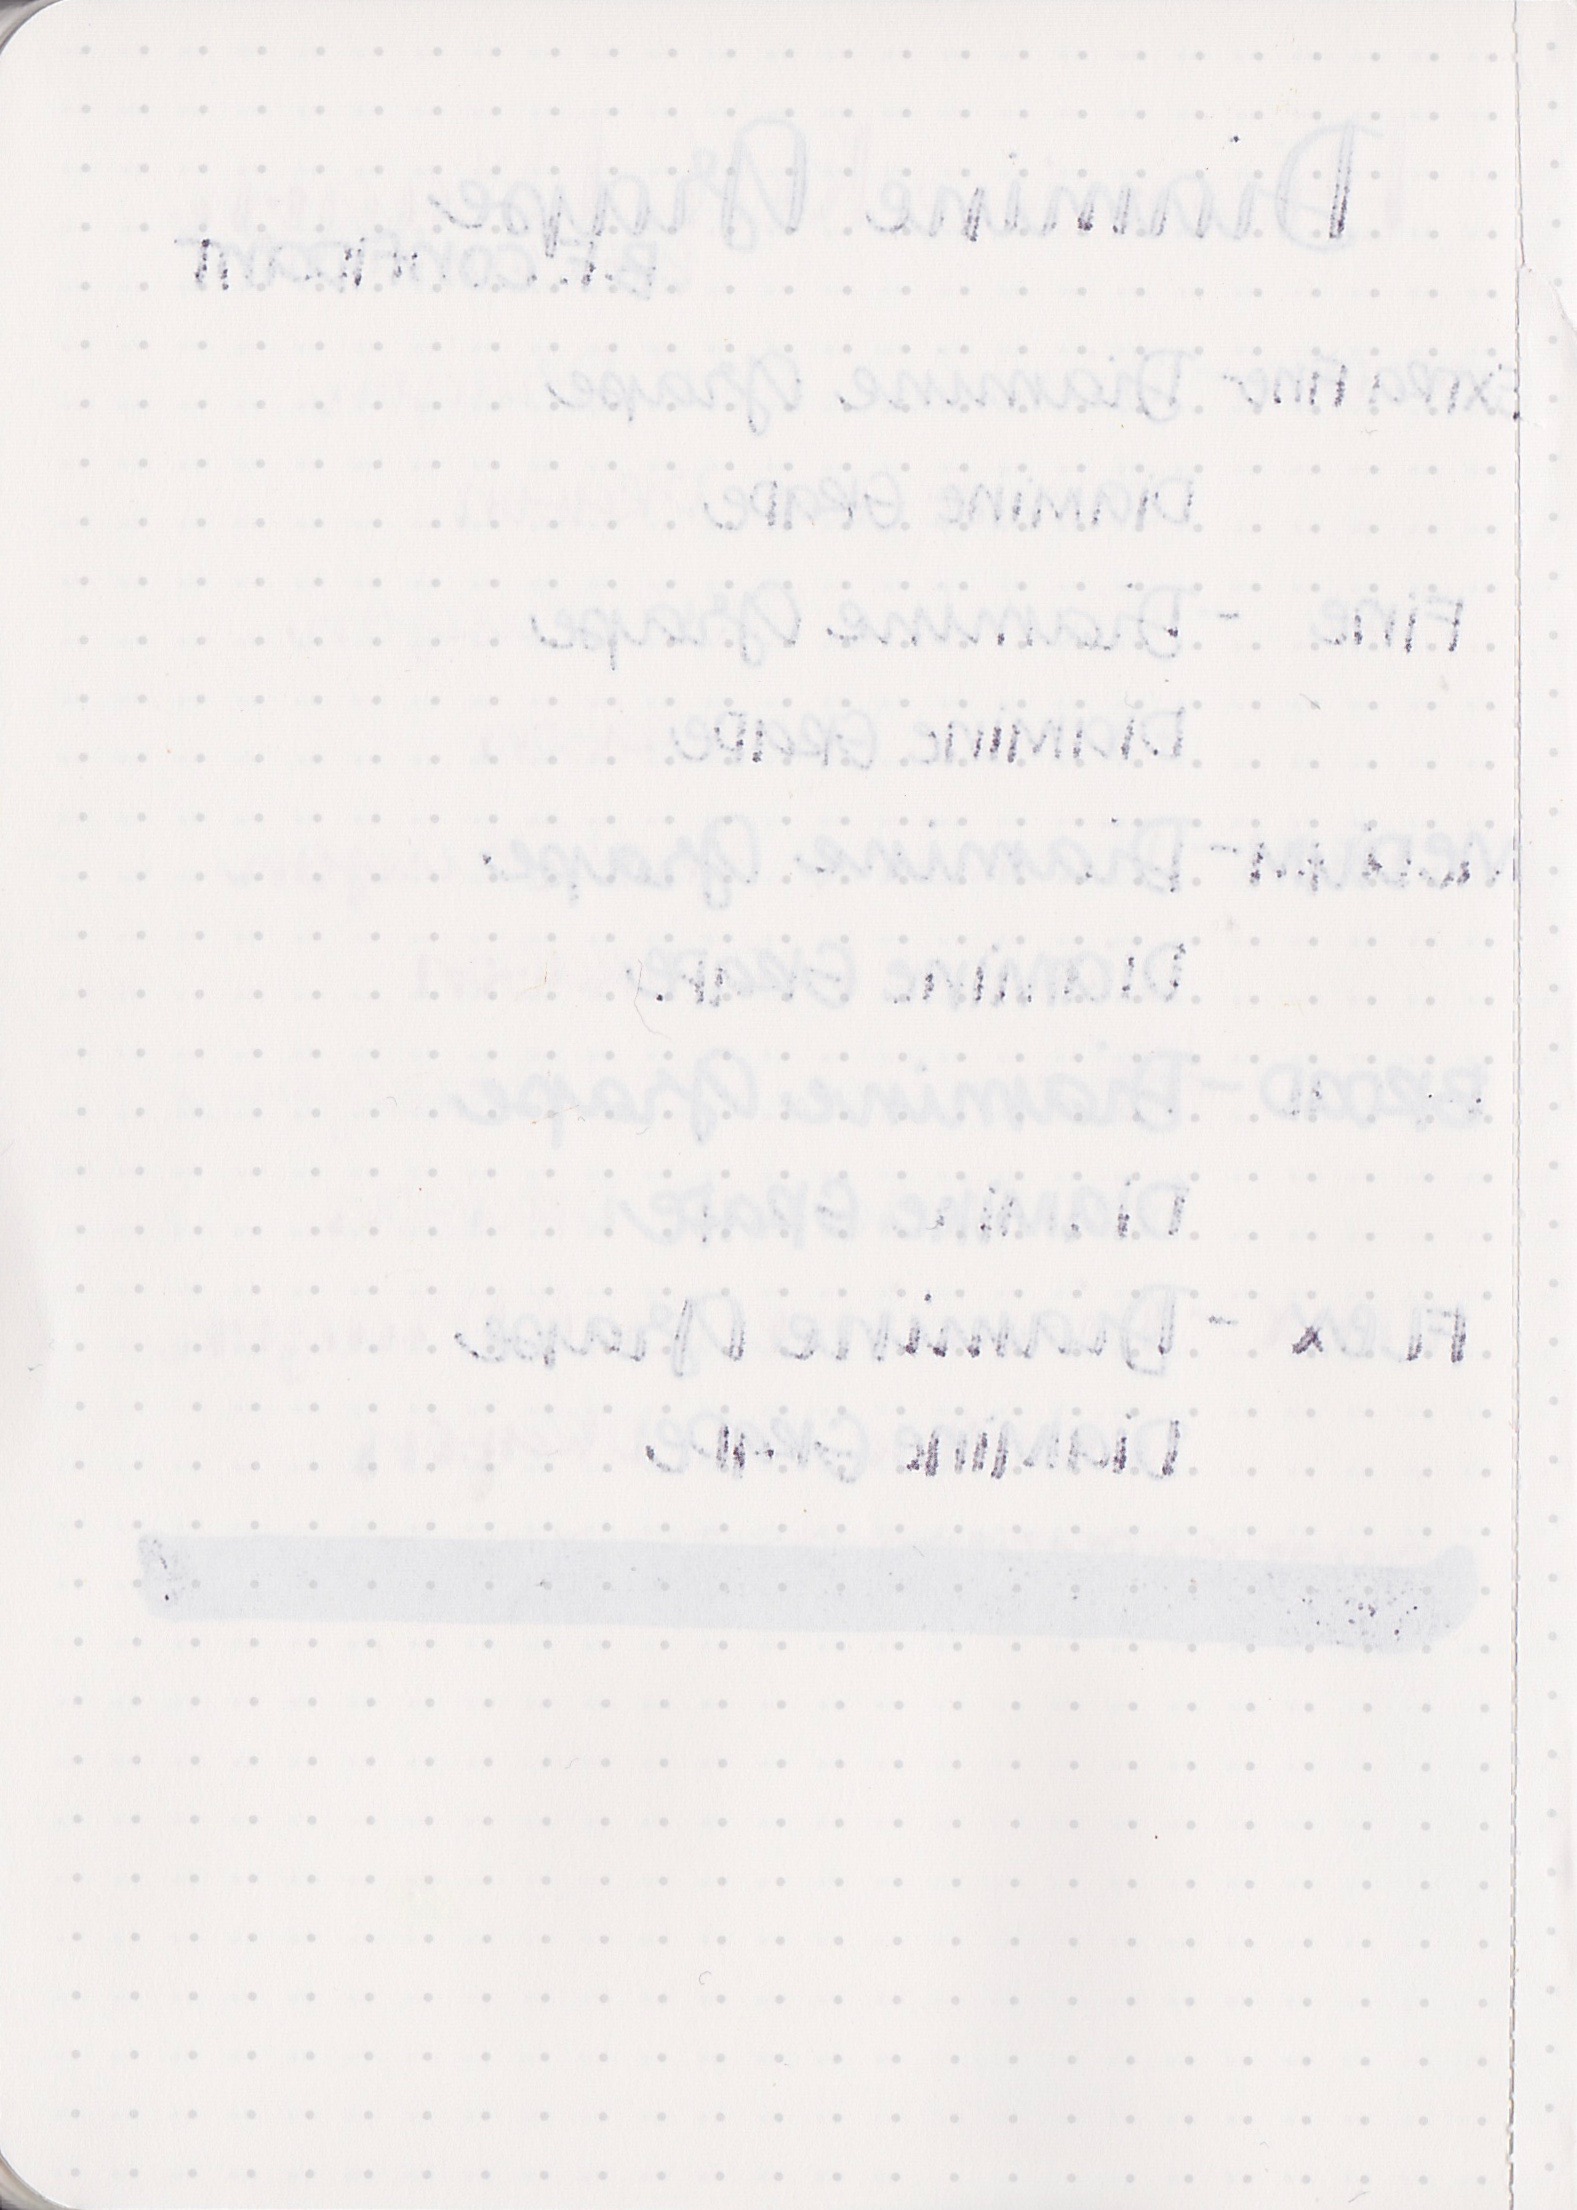 Diamine Grape
B.F. CONFIDANT
Extra Fine - Diamine Grape
Diamine Grape
Fine - Diamine Grape
Diamine Grape
Medium - Diamine Grape
Diamine Grape
BROAD - Diamine Grape
Diamine Grape
Flex - Diamine Grape
Diamine Grape